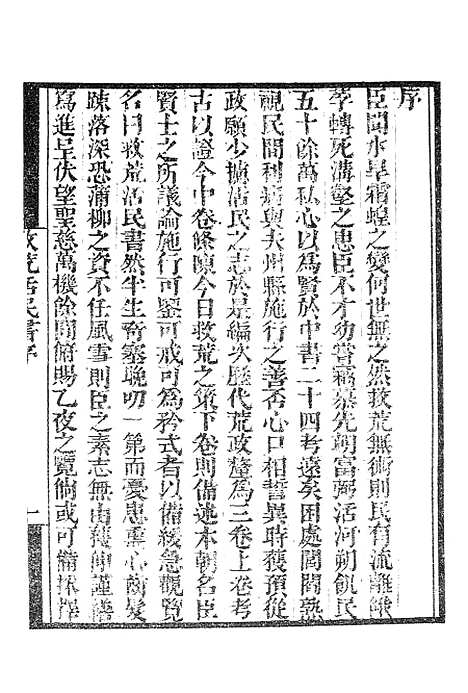 序
臣聞水旱霜蝗之變何世無之然救荒無術則民有流離餓
莩轉死溝壑之患臣不才幼嘗竊慕先朝富弼活河朔飢民
五十餘萬私心以爲賢於中書二十四考遠矣困處閭閻熟
視民間利病與夫州縣施行之善否心口相誓異時獲預從
政願少攄活民之志於是編次歷代荒政釐爲三卷上卷考
古以證今中卷條陳今日救荒之策下卷則備述本朝名臣
賢士之所議論施行可鑒可戒可爲矜式者以備緩急觀覽
名曰救荒活民書然半生奇蹇晚叨一第而憂患熏心齒髮
疎落深恐蒲柳之資不任風雪則臣之素志無由獲伸謹繕
寫進呈伏望聖慈萬機餘閒俯賜乙夜之覽倘或可備採擇
救荒活民書序
一